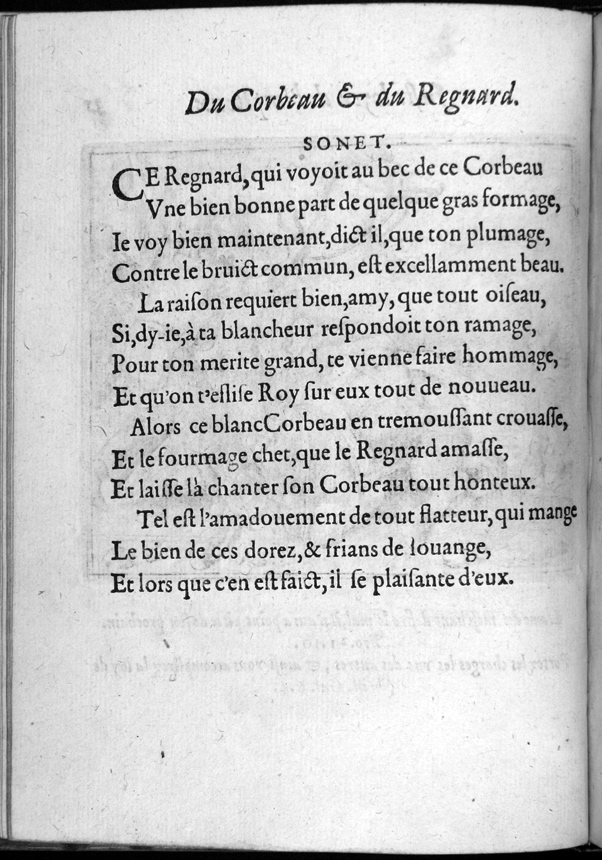 Du Corbeau & du Regnard.
SONET.
CE Regnard, qui voyoit au bec de ce Corbeau
Vne bien bonne part de quelque gras formage,
Ie voy bien maintenant, dict il, que ton plumage,
Contre le bruict commun, eſt excellamment beau.
La raiſon requiert bien, amy, que tout oiſeau,
Si, dy-ie, à ta blancheur reſpondoit ton ramage,
Pour ton merite grand, te vienne faire hommage,
Et qu'on t'eſliſe Roy ſur eux tout de nouueau.
Alors ce blancCorbeau en tremouſſant crouaſſe,
Et le fourmage chet, que le Regnard amaſſe,
Et laiſſe là chanter ſon Corbeau tout honteux.
Tel eſt l'amadouement de tout flatteur, qui mange
Le bien de ces dorez, & frians de louange,
Et lors que c'en eſt faict, il ſe plaiſante d'eux.